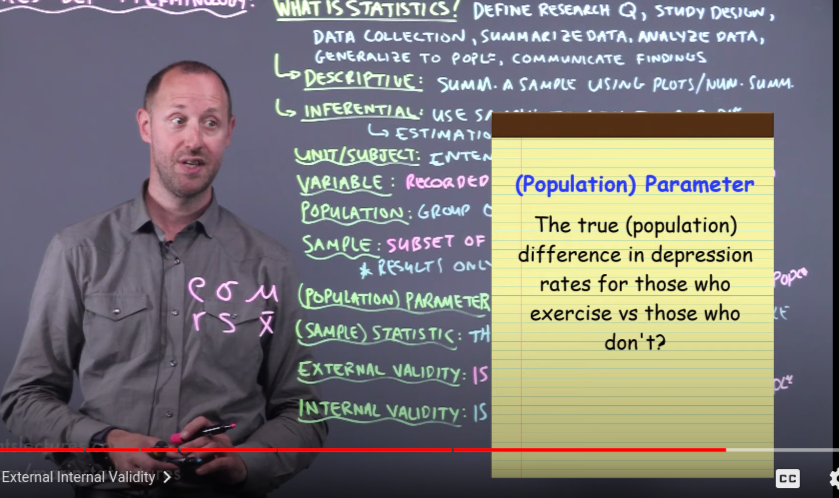 WHAT IS STATISTICS? DEFINE RESEARCH Q, STUDY DESIGN,
DATA COLLECTION, SUMMARIZE DATA, ANALYZE DATA,
GENERALIZE TO POPLE, COMMUNICATE FINDINGS
DESCRIPTIVE: SUMM. A SAMPLE USING PLOTS/NUM. SUMM.
INFERENTIAL: USE
ESTIMATIO
UNIT/SUBJECT: INTEN
VARIABLE: RECORDED
POPULATION: GROUP O
SAMPLE: SUBSET OF
* RESULTS ONLY
(POPULATION) PARAMETER
(SAMPLE) STATISTIC: TH
EXTERNAL VALIDITY: IS
INTERNAL VALIDITY: IS
ρ σ μ
r s x̄
(Population) Parameter
The true (population)
difference in depression
rates for those who
exercise vs those who
don't?
External Internal Validity >
CC